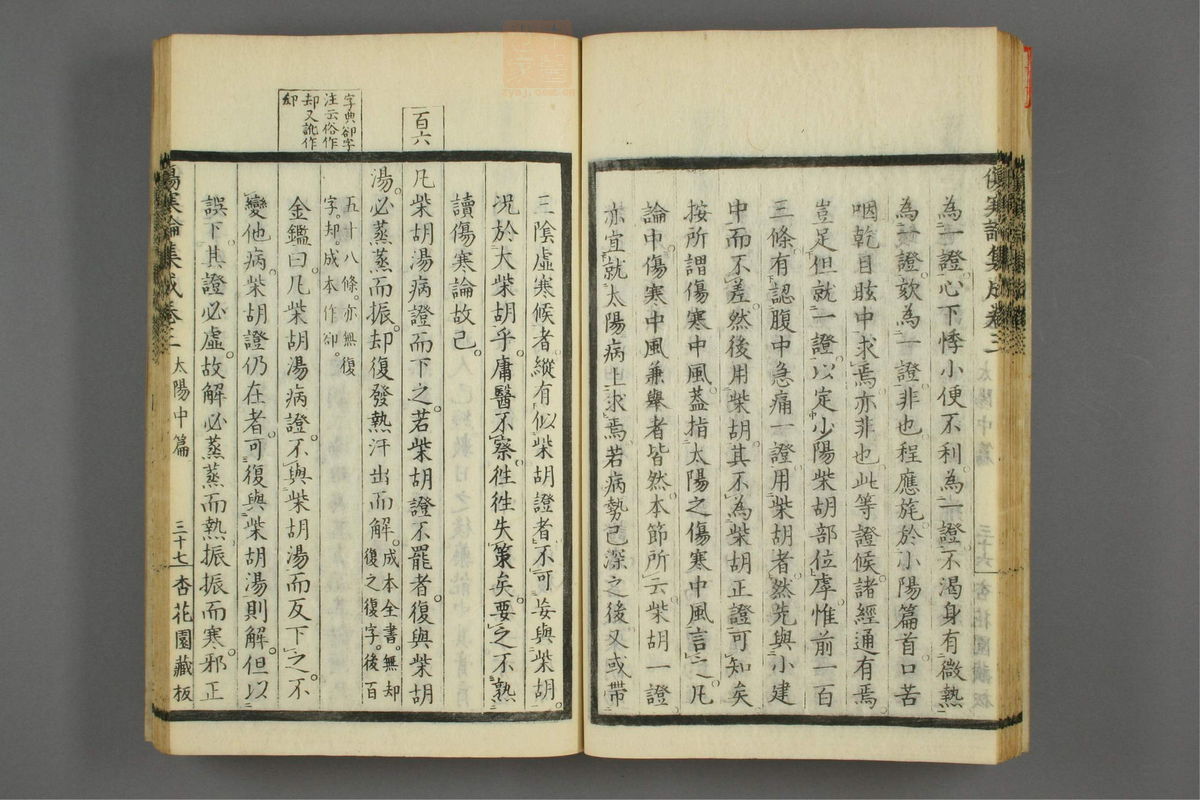 傷寒論集成卷三
為一證心下悸小便不利為一證不渴身有微熱
為一證欬為一證非也程應旄於小陽篇首口苦
咽乾目眩中求焉亦非也此等證候諸經通有焉
豈足但就一證以定少陽柴胡部位虖惟前一百
三條有認腹中急痛一證用柴胡者然先與小建
中而不差然後用柴胡其不為柴胡正證可知矣
按所謂傷寒中風蓋指太陽之傷寒中風言之凡
論中傷寒中風兼舉者皆然本節所云柴胡一證
亦宜就太陽病上求焉若病勢已深之後又或帶
三陰虛寒候者縱有似柴胡證者不可妄與柴胡
況於大柴胡乎庸醫不察徃徃失策矣要之不熟
讀傷寒論故已
百六
凡柴胡湯病證而下之若柴胡證不罷者復與柴胡
湯必蒸蒸而振却復發熱汗出而解成本全書無却
復之復字後百
五十八條亦無復
字却成本作卻
字典卻字
注云俗作
却又訛作
郄
金鑑曰凡柴胡湯病證不與柴胡湯而反下之不
變他病柴胡證仍在者可復與柴胡湯則解但以
誤下其證必虛故解必蒸蒸而熱振振而寒邪正
傷寒論集成卷三 太陽中篇 三十七 杏花園藏板